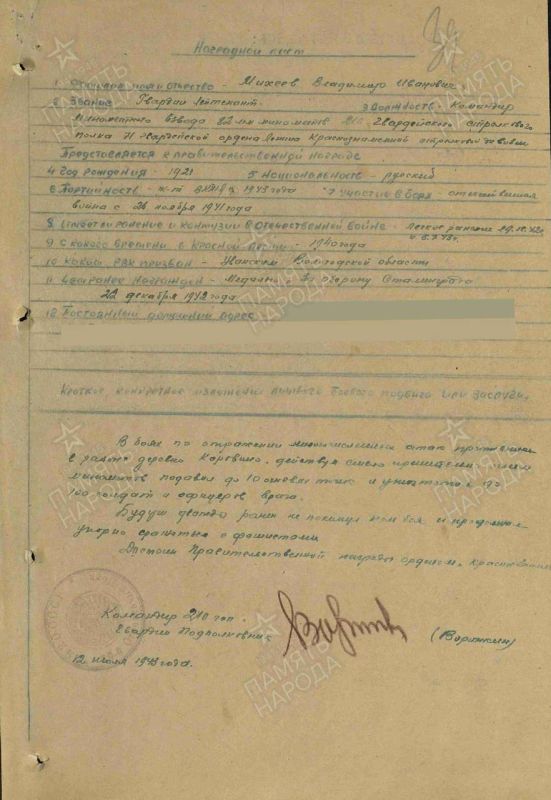 Наградной лист
1. Фамилия имя и отчество - Михеев Владимир Иванович
2. Звание - Гвардии Лейтенант. 3 Должность - Командир
Минометного взвода 82 мм минометов 210 Гвардейского стрелкового
полка Гвардейской ордена Ленина Краснознаменной стрелковой дивизии
Представляется к правительственной награде
4. Год рождения - 1921 5 Национальность - русский
6 Партийность - ВКП/б 1943 года 7 Участие в боях - отечественная
война с 26 ноября 1941 года
8. Имеет ли ранение и контузии в Отечественной войне - Легкое ранение
9. С какого времени в Красной Армии - 1940 года
10 Каким РВК призван - Вологодской области
11 Чем ранее награжден - Медалью За оборону Сталинграда
22 декабря 1942 года
12 Постоянный домашний адрес
Краткое, конкретное изложение личного боевого подвига или заслуги.
В боях по отражению многочисленных атак противника
в районе деревни действуя смело огнем
минометов подавил до 10 огневых точек и уничтожил до
100 солдат и офицеров врага.
Будучи дважды ранен не покинул поля боя и продолжал
упорно сражаться с фашистами
Достоин Правительственной награды орденом
Командир 210 гсп.
Гвардии Подполковник
12 июля 1943 года.
ПАМЯТЬ
НАРОДА
ПАМЯТЬ
НАРОДА
ПАМЯТЬ
НАРОДА
ПАМЯТЬ
НАРОДА
ПАМЯТЬ
НАРОДА